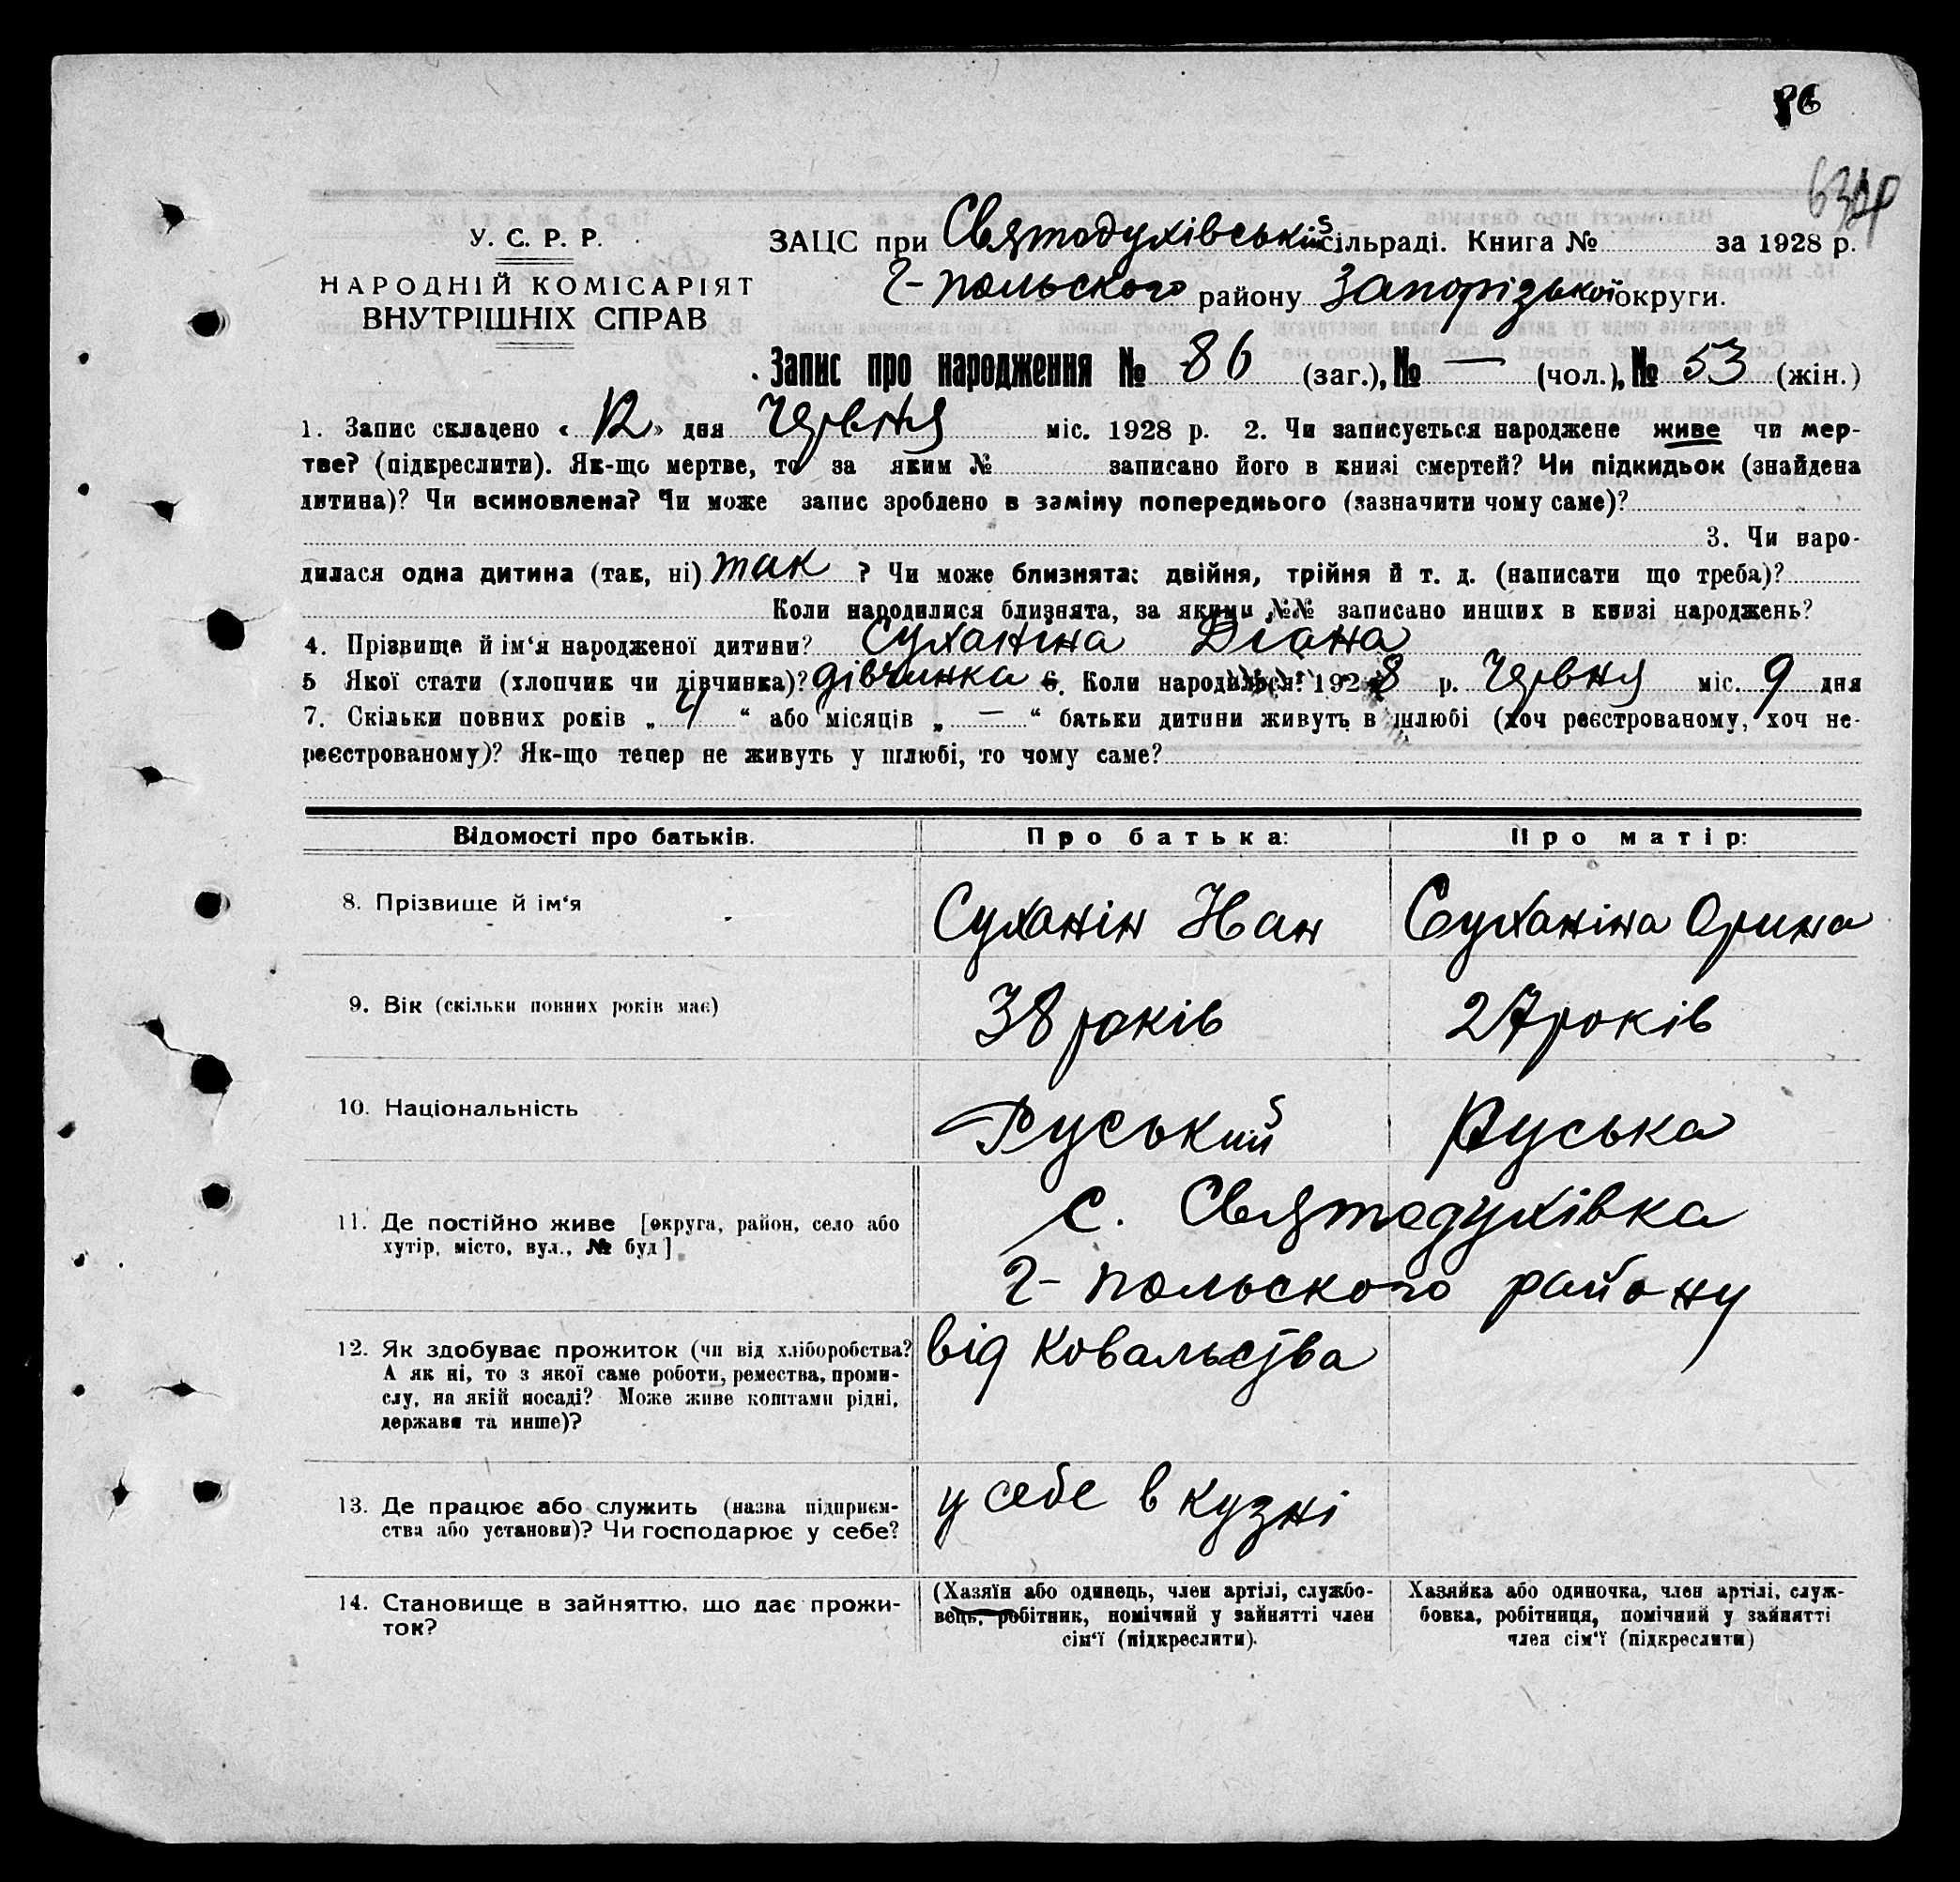 86
У. С. Р. Р.
НАРОДНІЙ КОМІСАРІЯТ
ВНУТРІШНІХ СПРАВ
ЗАЦС при Святодухівській сільраді. Книга № за 1928 р.
Г-польского району Запорізької округи.
Запис про народження № 86 (заг.), № — (чол.), № 53 (жін.)
1. Запис складено «12» дня Червня міс. 1928 р. 2. Чи записується народжене живе чи мер-
тве? (підкреслити). Як-що мертве, то за яким № записано його в книзі смертей? Чи підкидьок (знайдена
дитина)? Чи всиновлена? Чи може запис зроблено в заміну попереднього (зазначити чому саме)?
3. Чи наро-
дилася одна дитина (так, ні) так ? Чи може близнята: двійня, трійня й т. д. (написати що треба)?
Коли народилися близнята, за якими №№ записано инших в книзі народжень?
4. Прізвище й ім‘я народженої дитини? Суханіна Діана
5 Якої стати (хлопчик чи дівчинка)? дівчинка 6. Коли народилься? 1928 р. Червня міс. 9 дня
7. Скільки повних років „ 4 “ або місяців „ — “ батьки дитини живуть в шлюбі (хоч реєстрованому, хоч не-
реєстрованому)? Як-що тепер не живуть у шлюбі, то чому саме?
Відомості про батьків. Про батька: Про матір:
8. Прізвище й ім‘я Суханін Иан Суханіна Орина
9. Вік (скільки повних років має) 38 років 27 років
10. Національність Руський Руська
11. Де постійно живе [округа, район, село або
хутір, місто, вул., № буд]
с. Святодухівка
Г-польского району
12. Як здобуває прожиток (чи від хліборобства?
А як ні, то з якої саме роботи, ремества, проми-
слу, на якій посаді? Може живе коштами рідні,
держави та инше)?
від Ковальства
13. Де працює або служить (назва підприєм-
ства або установи)? Чи господарює у себе?
у себе в кузні
14. Становище в зайняттю, що дає прожи-
ток?
(Хазяїн або одинець, член артілі, службо-
вець, робітник, помічний у зайнятті член
сім‘ї (підкреслити).
Хазяйка або одиночка, член артілі, служ-
бовка, робітниця, помічний у зайнятті
член сім‘ї (підкреслити)